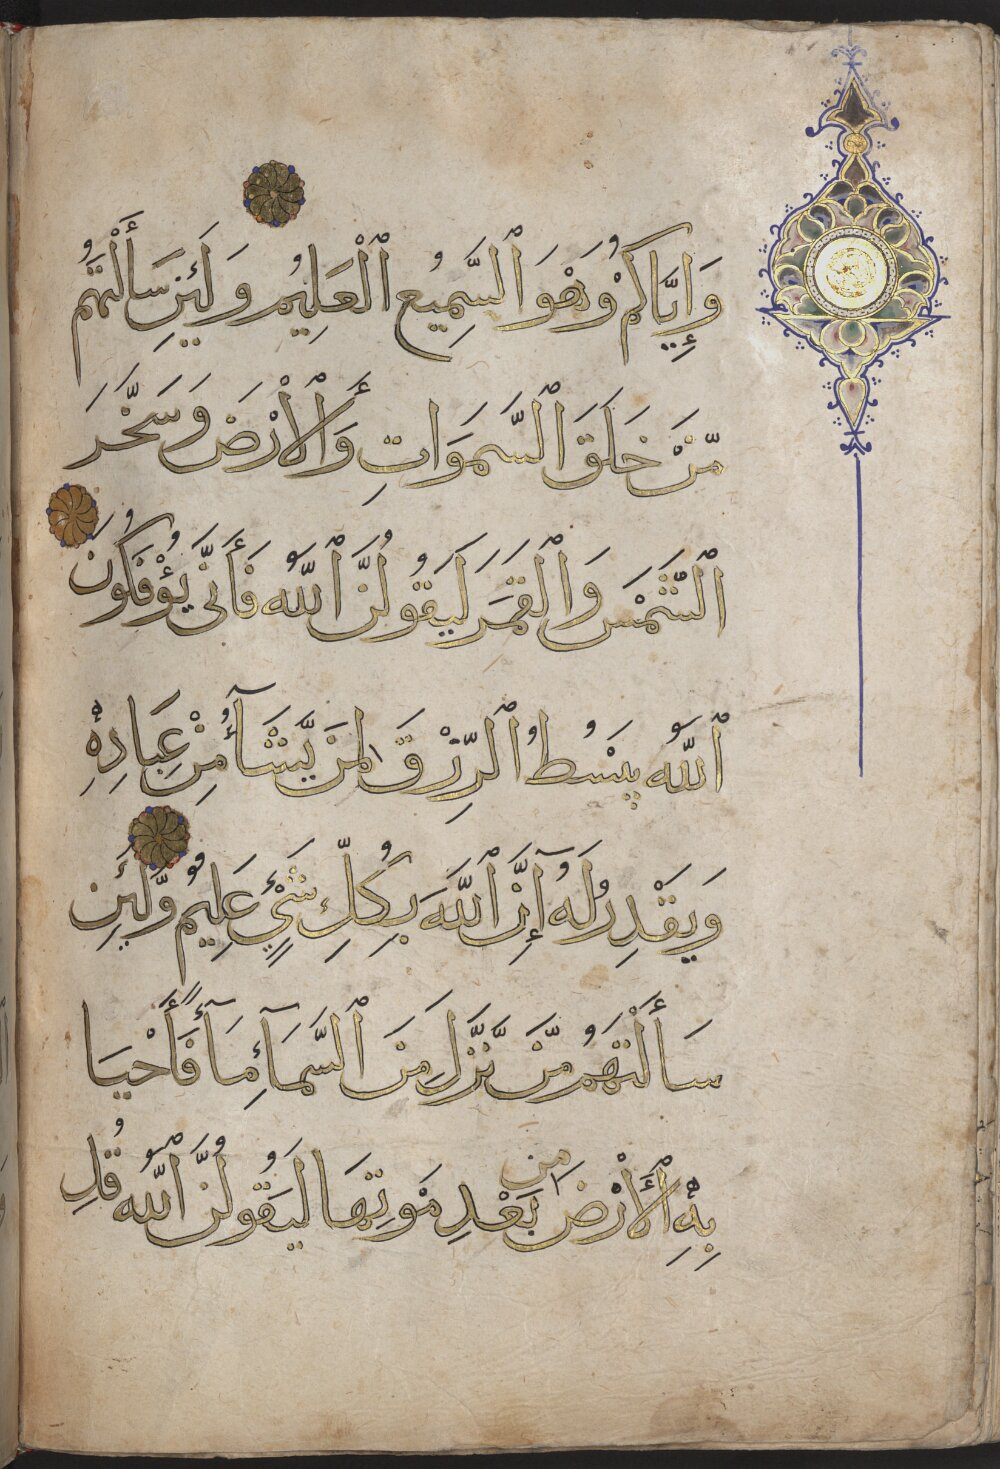 وَإِيَّاكُمْ وَهْوَ ٱلسَّمِيعُ ٱلْعَلِيمُ وَلَئِن سَأَلْتَهُم
مَّنْ خَلَقَ ٱلسَّمَوَاتِ وَٱلْأَرْضَ وَسَخَّرَ
ٱلشَّمْسَ وَٱلْقَمَرَ لَيَقُولُنَّ ٱللَّهُ فَأَنَّى يُؤْفَكُونَ
ٱللَّهُ يَبْسُطُ ٱلرِّزْقَ لِمَن يَّشَآءُ مِنْ عِبَادِهِ
وَيَقْدِرُ لَهُٓ إِنَّ ٱللَّهَ بِكُلِّ شَيْءٍ عَلِيمٌ وَّلَئِن
سَأَلْتَهُم مَّن نَّزَّلَ مِنَ ٱلسَّمَآءِ مَآءً فَأَحْيَا
بِهِ ٱلْأَرْضَ مِن بَعْدِ مَوْتِهَا لَيَقُولُنَّ ٱللَّهُ قُلِ